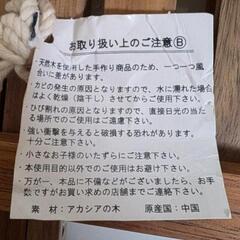 お取り扱い上のご注意Ⓑ
・天然木を使用した手作り商品のため、一つ一つ風
合いに差があります。
・カビの発生の原因となりますので、水に濡れた場合は
よく乾燥（陰干し）させてからご使用下さい。
・ひび割れの原因となりますので、直接日光の当
たる場所でのご使用はご遠慮下さい。
・強い衝撃を与えると破損する恐れがあります。
十分ご注意下さい。
・小さなお子様のいたずらにご注意下さい。
・本使用目的以外でのご使用はお避け下さい。
・万が一、本品に不備などがございましたら、お手
数ですがお買い求めの店舗までご連絡下さい。
素　材：アカシアの木　原産国：中国